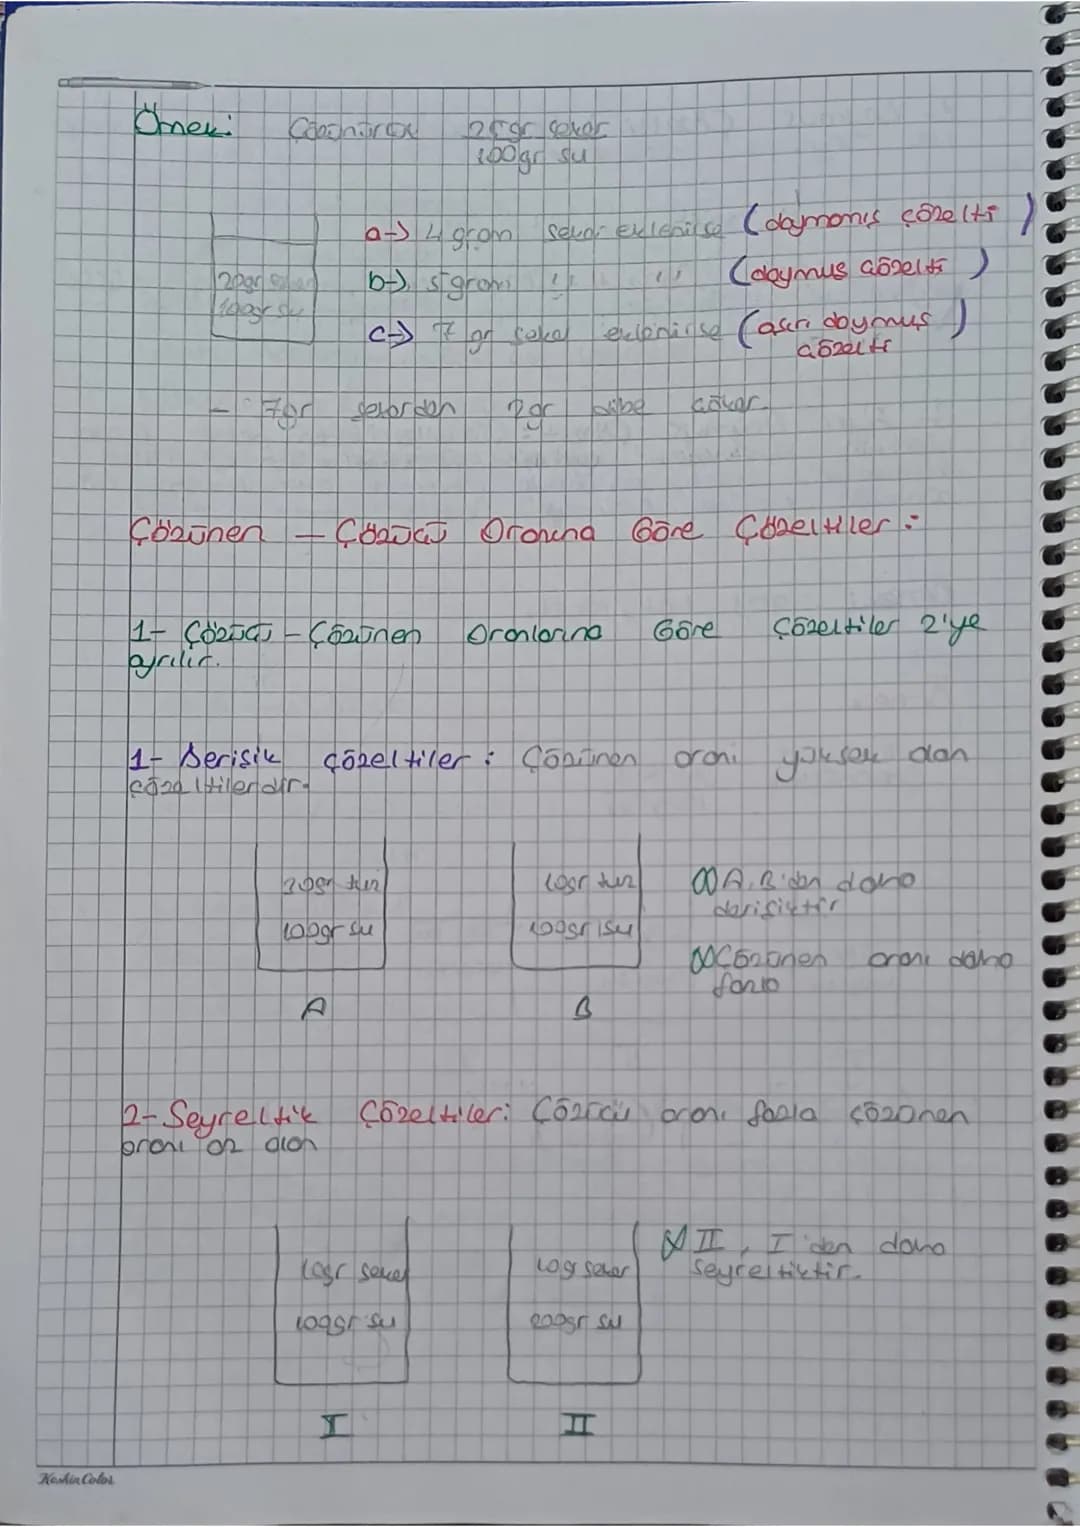 Örnek: Çözünürlük 25gr şeker
100gr su
a-> 4 gram şeker eklenirse (doymamış çözelti)
20gr şeker
b-> 5 gram '' '' (doymuş çözelti)
100gr su
c-> 7 gr şeker eklenirse (aşırı doymuş
çözelti
- 7gr şekerden 2gr dibe çöker.
Çözünen - Çözücü Oranına Göre Çözeltiler:
1- Çözücü - Çözünen Oranlarına Göre Çözeltiler 2'ye
ayrılır.
1- Derişik çözeltiler: Çözünen oranı yüksek olan
çözeltilerdir.
20gr tuz
100gr su
A
10gr tuz
100gr su
B
A, B'den daha
derişiktir
Çözünen oranı daha
fazla
2- Seyreltik Çözeltiler: Çözücü oranı fazla çözünen
oranı az olan
10gr şeker
100gr su
I
10g şeker
200gr su
II
II, I'den daha
seyreltiktir.
Keskin Color